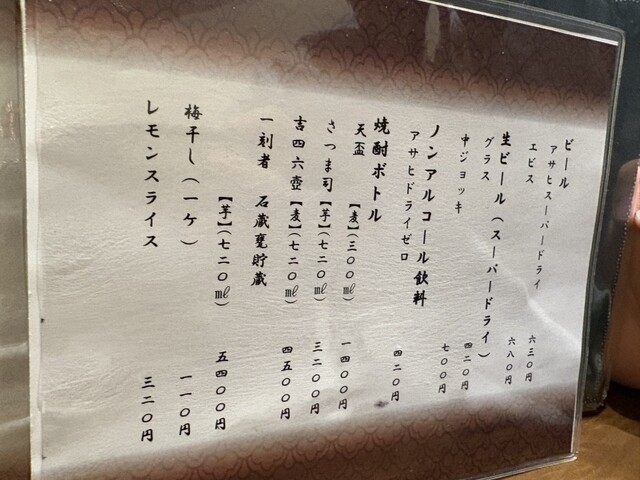 ビール
アサヒスーパードライ 六三〇円
エビス 六八〇円
生ビール(スーパードライ)
グラス 四二〇円
中ジョッキ 七〇〇円
ノンアルコール飲料
アサヒドライゼロ 四二〇円
焼酎ボトル
天盃 【麦】(三〇〇㎖) 一四〇〇円
さつま司 【芋】(七二〇㎖) 三二〇〇円
吉四六壺 【麦】(七二〇㎖) 四五〇〇円
一刻者 石蔵甕貯蔵
【芋】(七二〇㎖) 五四〇〇円
梅干し(一ケ) 一一〇円
レモンスライス 三二〇円